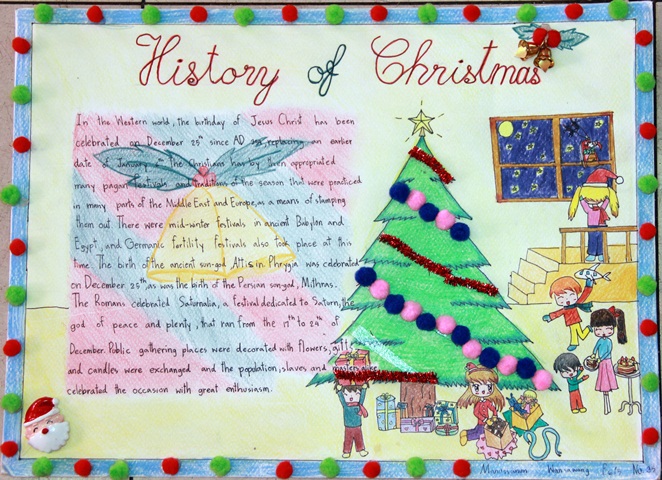 History of Christmas
In the Western world, the birthday of Jesus Christ has been
celebrated on December 25th since AD replacing an earlier
date of January The Christians has by then appropriated
many pagan festivals and traditions of the season that were practiced
in many parts of the Middle East and Europe, as a means of stamping
them out There were mid-winter festivals in ancient Babylon and
Egypt, and Germanic fertility festivals also took place at this
time. The birth of the ancient sun-god Attis in Phrygia was celebrated
on December 25th, as was the birth of the Persian sun-god, Mithras.
The Romans celebrated Saturnalia, a festival dedicated to Saturn, the
god of peace and plenty, that ran from the 17th to 24th of
December. Public gathering places were decorated with flowers, gifts
and candles were exchanged and the population, slaves and masters alike
celebrated the occasion with great enthusiasm.